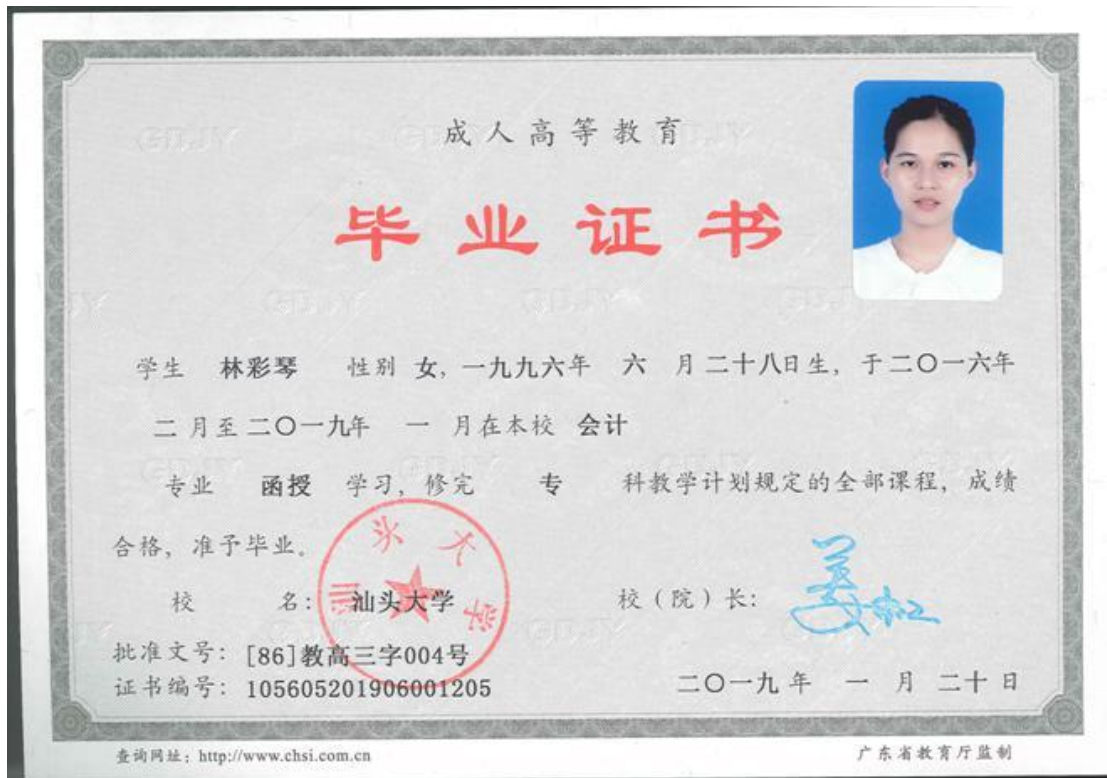 成人高等教育
毕业证书
学生 林彩琴 性别 女, 一九九六年 六 月 二十八日生, 于二〇一六年
二 月至 二〇一九年 一 月在本校 会计
专业 函授 学习, 修完 专 科教学计划规定的全部课程, 成绩
合格, 准予毕业。
汕头大学
校 名: 汕头大学 校(院)长:
批准文号: [86]教高三字004号
证书编号: 105605201906001205 二〇一九 年 一 月 二十 日
查询网址: http://www.chsi.com.cn 广东省教育厅监制
GDJY